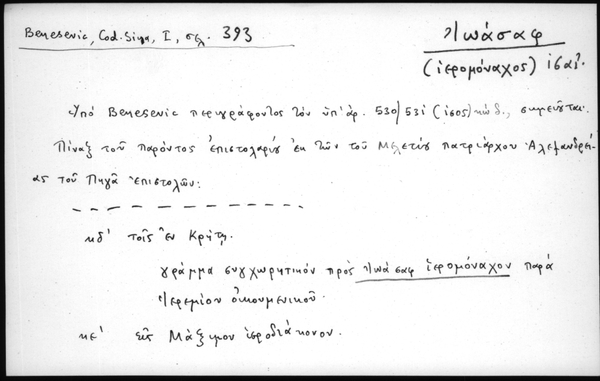 Benesevic, Cod. Sina, I, σελ. 393
Ἰωάσαφ
(ἱερομόναχος)
Ὑπὸ Benesevic περιγράφοντος τὸν ὑπ' ἀρ. 530/531 (ἴσος) κώδ., σημειοῦται:
Πίναξ τοῦ παρόντος ἐπιστολαρίου ἐκ τῶν τοῦ Μελετίου πατριάρχου Ἀλεξανδρεί-
ας τοῦ Πηγᾶ ἐπιστολῶν:
κδ' τοῖς ἐν Κρήτῃ.
γράμμα συγχωρητικὸν πρὸς Ἰωάσαφ ἱερομόναχον παρὰ
Ἱερεμίου οἰκουμενικοῦ.
κε' εἰς Μάξιμον ἱεροδιάκονον.